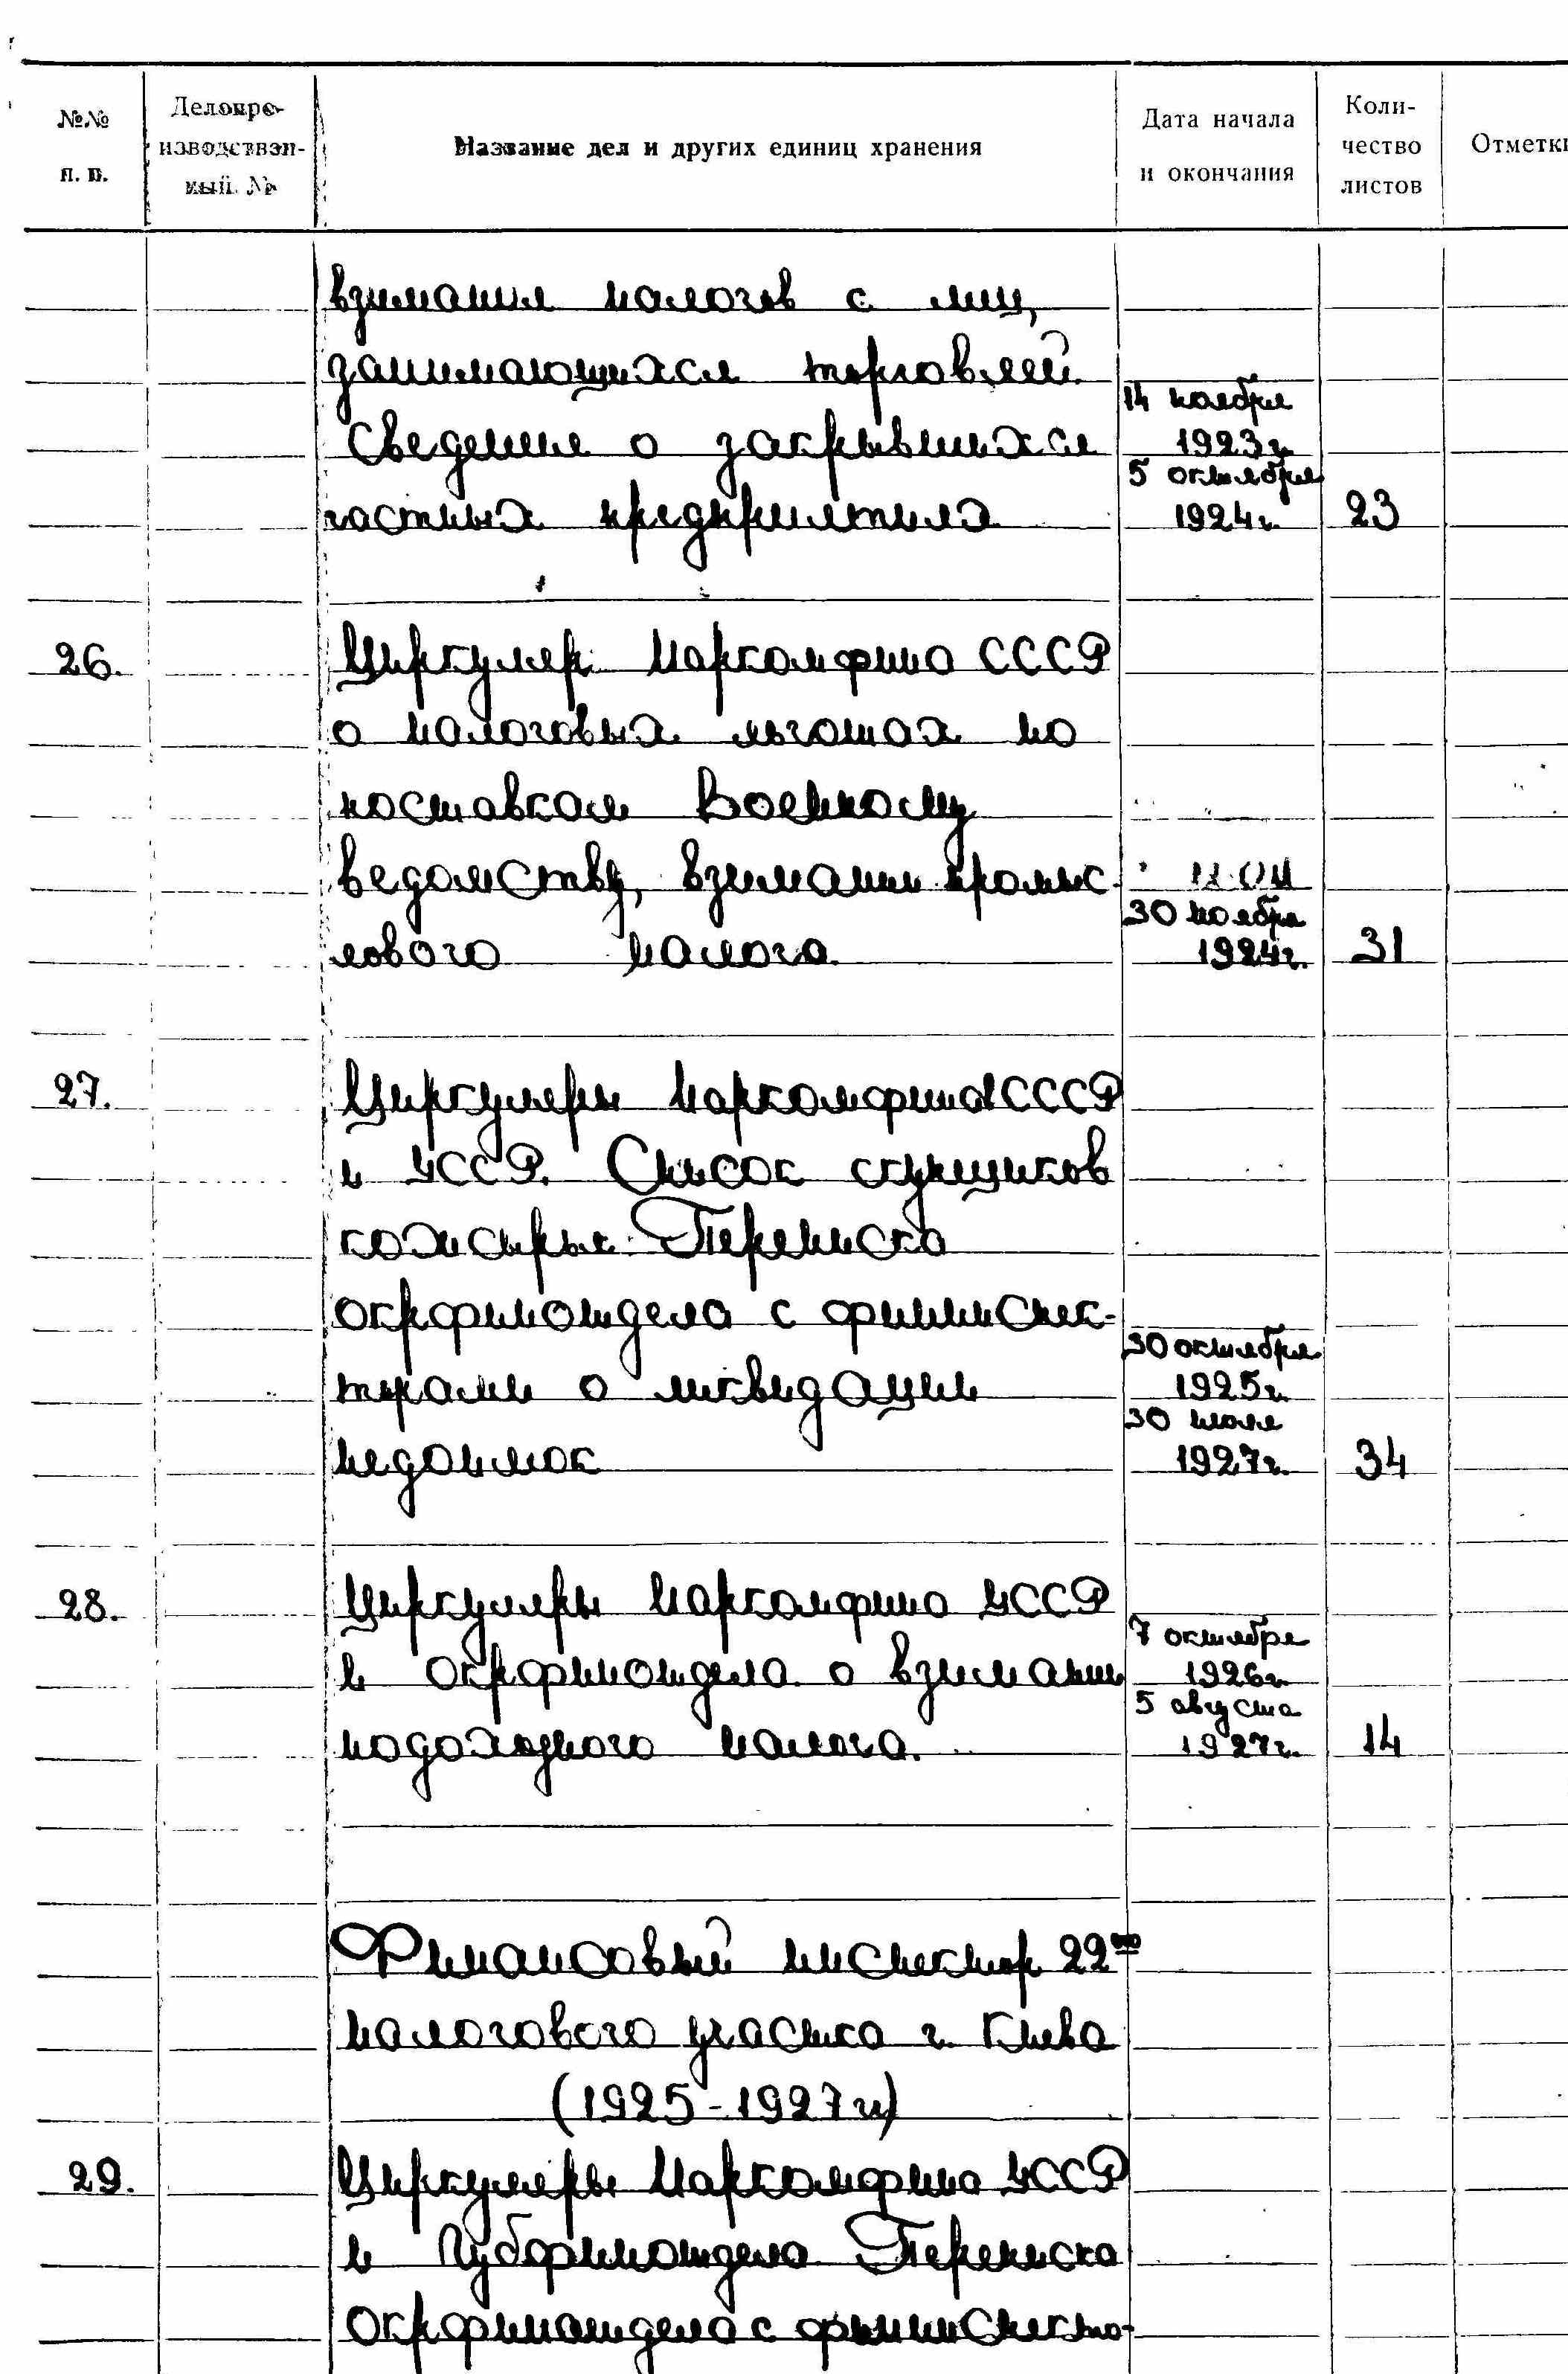 №№ п. п.
Делопроизводственный №
Название дел и других единиц хранения
Дата начала и окончания
Количество листов
Отметки
взимания налогов с лиц,
занимающихся торговлей.
14 ноября
Сведения о закрывшихся 1923г.
5 октября
частных предприятиях 1924г. 23
26. Циркуляр Наркомфина СССР
о налоговых льготах по
поставкам Военному
ведомству, взимании промыс-
30 ноября
лового налога. 1924г. 31
27. Циркуляры Наркомфина СССР
и УССР. Список скупщиков
кожсырья. Переписка
Окрфинотдела с фининспек-
30 октября
торами о ликвидации 1925г.
30 июля
недоимок 1927г. 34
28. Циркуляры Наркомфина УССР
7 октября
и Окрфинотдела о взимании 1926г.
5 августа
подоходного налога. 1927г. 14
Финансовый инспектор 22го
налогового участка г. Киева
(1925-1927гг)
29. Циркуляры Наркомфина УССР
и Губфинотдела Переписка
Окрфинотдела с фининспекто-